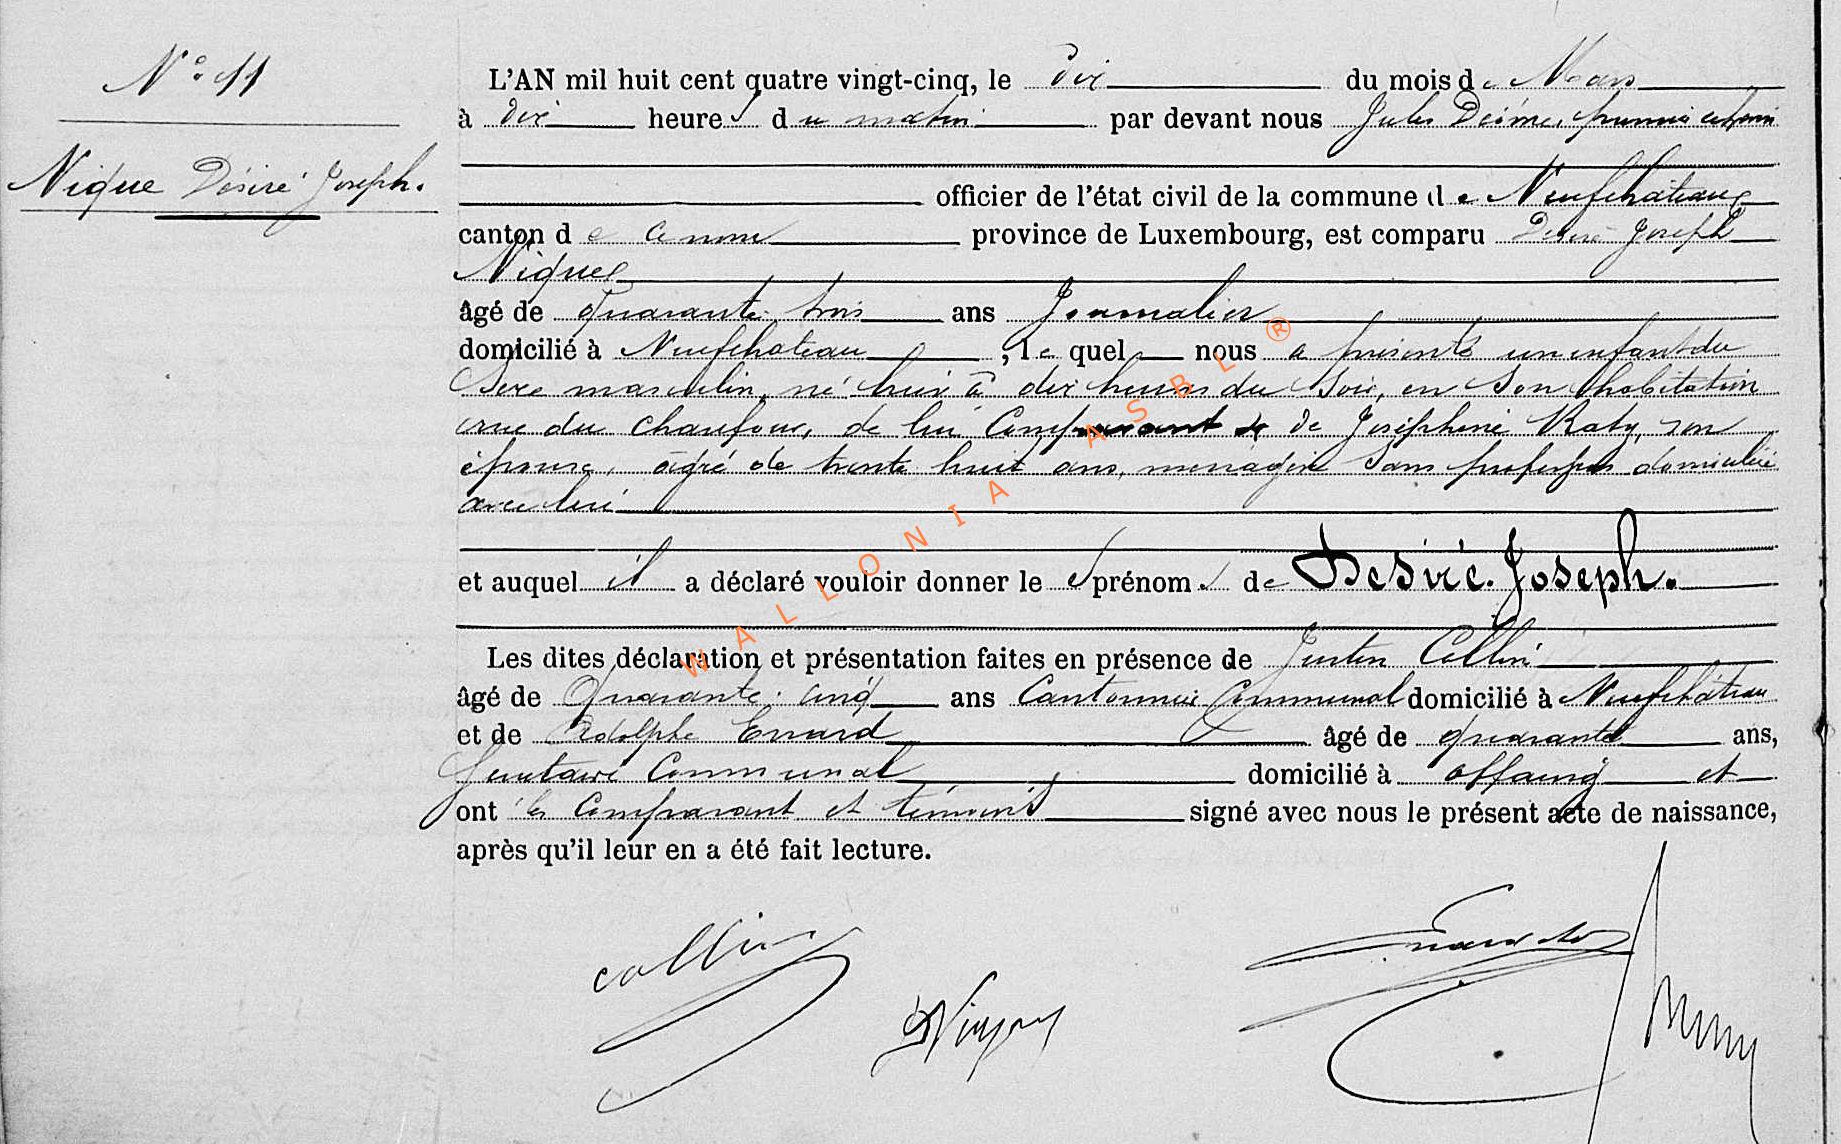 N° 11
Nique Désiré Joseph.
L'AN mil huit cent quatre vingt-cinq, le dix du mois de Mars
à dix heures du matin par devant nous Jules
officier de l'état civil de la commune de Neufchâteau
canton de province de Luxembourg, est comparu Désiré Joseph
Nique
âgé de quarante trois ans Journalier
domicilié à Neufchateau, le quel nous a présenté un enfant du
Sexe masculin, né hier à dix heures du Soir, en Son habitation
rue du Chaufour, de lui Comparant & de Joséphine Raty, son
épouse, âgée de trente huit ans, ménagère Sans profession domiciliée
avec lui
et auquel il a déclaré vouloir donner les prénoms de Désiré. Joseph.
Les dites déclaration et présentation faites en présence de Justin Collin
âgé de Quarante-cinq ans Cantonnier Communal domicilié à Neufchâteau
et de Adolphe Evrard âgé de quarante ans,
Secrétaire Communal domicilié à Offaing et
ont les Comparant et témoins signé avec nous le présent acte de naissance,
après qu'il leur en a été fait lecture.
collin
WALLONIA ASBL ®